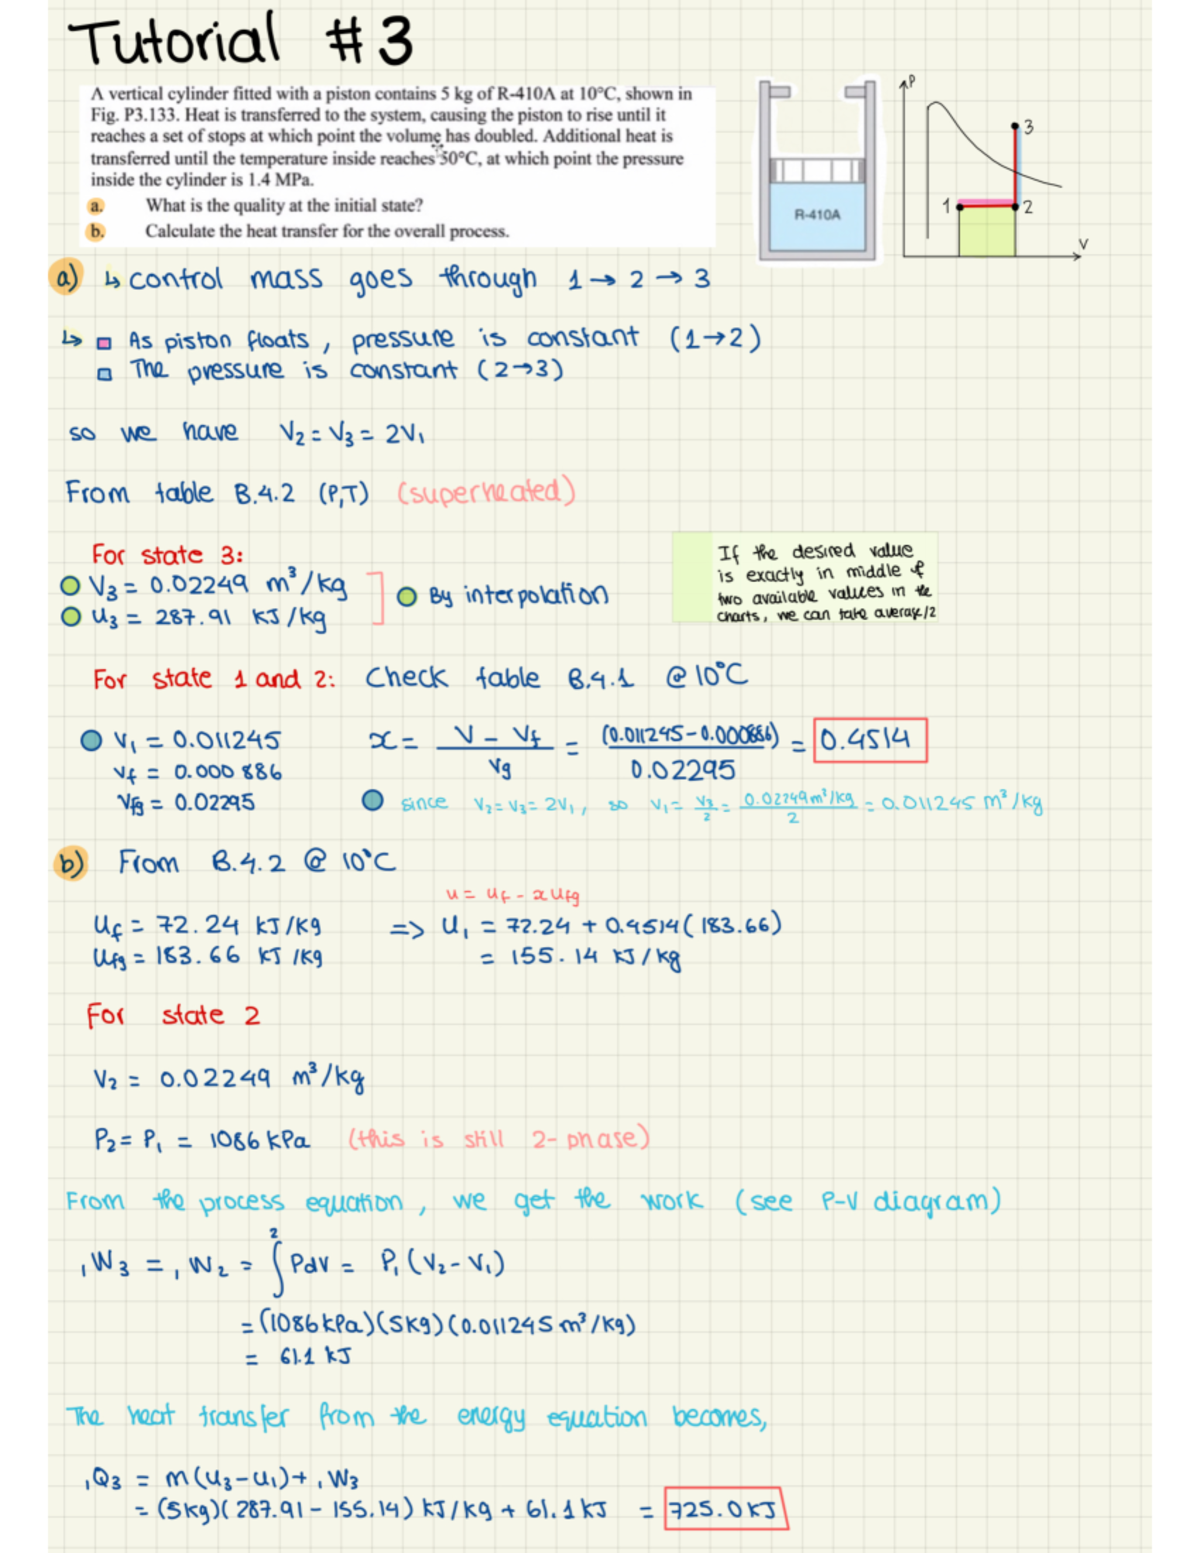 Tutorial #3
A vertical cylinder fitted with a piston contains 5 kg of R-410A at 10°C, shown in
Fig. P3.133. Heat is transferred to the system, causing the piston to rise until it
reaches a set of stops at which point the volume has doubled. Additional heat is
transferred until the temperature inside reaches 50°C, at which point the pressure
inside the cylinder is 1.4 MPa.
a. What is the quality at the initial state?
b. Calculate the heat transfer for the overall process.
R-410A
P
3
1
2
V
a) ↳ control mass goes through 1 → 2 → 3
↳ As piston floats, pressure is constant (1→2)
The pressure is constant (2→3)
so we have V₂ = V₃ = 2V₁
From table B.4.2 (P,T) (superheated)
For state 3:
V₃ = 0.02249 m³/kg
u₃ = 287.91 kJ/kg
By interpolation
If the desired value
is exactly in middle of
two available values in the
charts, we can take average/2
For state 1 and 2: Check table B.4.1 @ 10°C
V₁ = 0.011245
Vf = 0.000 886
Vfg = 0.02295
x = (V - Vf)/Vg = (0.011245-0.000886)/0.02295 = 0.4514
since V₂ = V₃ = 2V₁, so V₁ = V₃/2 = 0.02249m³/kg/2 = 0.011245 m³/kg
b) From B.4.2 @ 10°C
u = uf - xufg
uf = 72.24 kJ/kg => u₁ = 72.24 + 0.4514(183.66)
ufg = 183.66 kJ/kg = 155.14 kJ/kg
For state 2
V₂ = 0.02249 m³/kg
P₂ = P₁ = 1086 kPa (this is still 2-phase)
From the process equation, we get the work (see P-V diagram)
₁W₃ = ₁W₂ = ∫² Pdv = P₁(V₂-V₁)
= (1086 kPa)(5kg)(0.011245 m³/kg)
= 61.1 kJ
The heat transfer from the energy equation becomes,
₁Q₃ = m(u₃-u₁)+ ₁W₃
= (5kg)(287.91 - 155.14) kJ/kg + 61.1 kJ = 725.0 kJ